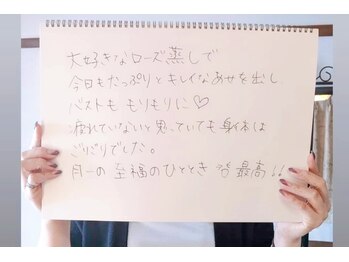 大好きなローズ蒸しで
今日もたっぷりとキレイなあせを出し
バストももりもりに♡
疲れていないと思っていても身体は
ごりごりでした。
月一の至福のひととき 最高!!